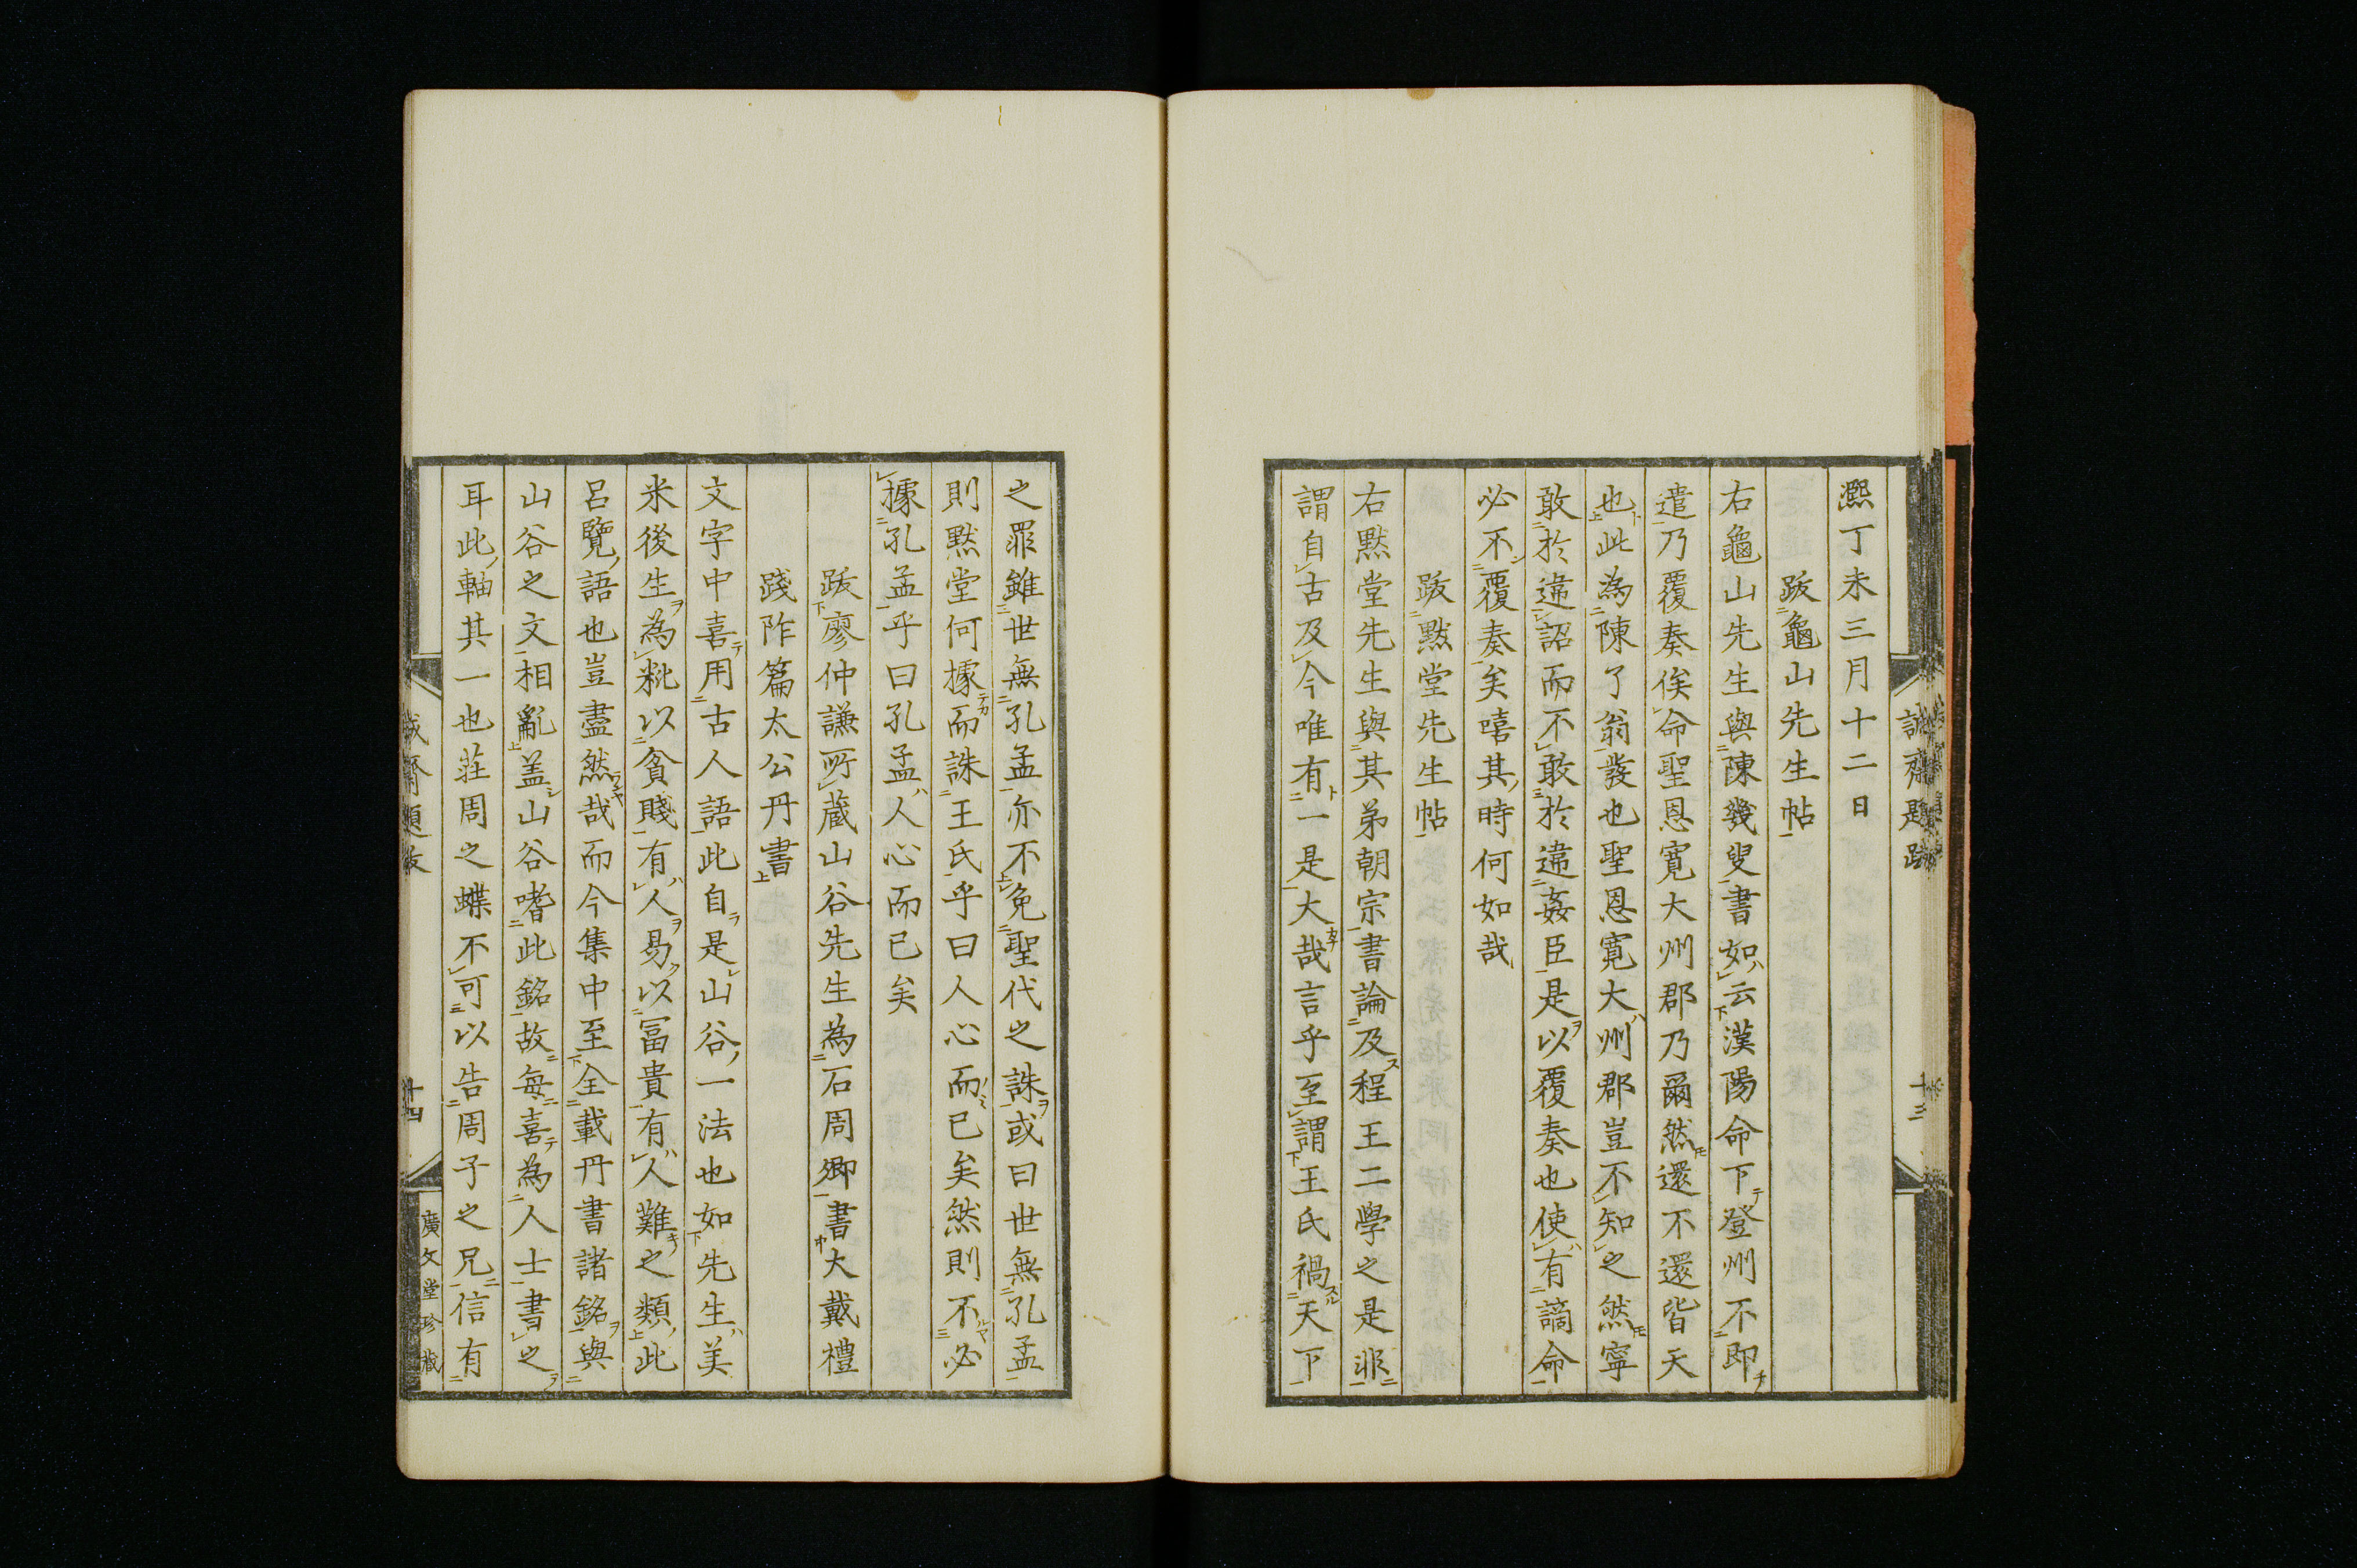 誠齋題跋
十三
凞丁未三月十二日
跋龜山先生帖
右龜山先生與陳幾叟書如云漢陽命下登州不即
遣乃覆奏俟命聖恩寛大州郡乃爾然還不還皆天
也此為陳了翁發也聖恩寛大州郡豈不知之然寧
敢於違詔而不敢於違姦臣是以覆奏也使有謫命
必不覆奏矣嘻其時何如哉
跋默堂先生帖
右默堂先生與其弟朝宗書論及程王二學之是非
謂自古及今唯有一是大哉言乎至謂王氏禍天下
之罪雖世無孔孟亦不免聖代之誅或曰世無孔孟
則默堂何據而誅王氏乎曰人心而已矣然則不必
據孔孟乎曰孔孟人心而已矣
跋廖仲謙所藏山谷先生為石周卿書大戴禮
踐阼篇太公丹書
文字中喜用古人語此自是山谷一法也如先生美
米後生為粃以貧賤有人易以冨貴有人難之類此
呂覽語也豈盡然哉而今集中至全載丹書諸銘與
山谷之文相亂盖山谷嗜此銘故每喜為人士書之
耳此軸其一也莊周之蝶不可以告周子之兄信有
誠齋題跋
十四
廣文堂珍藏